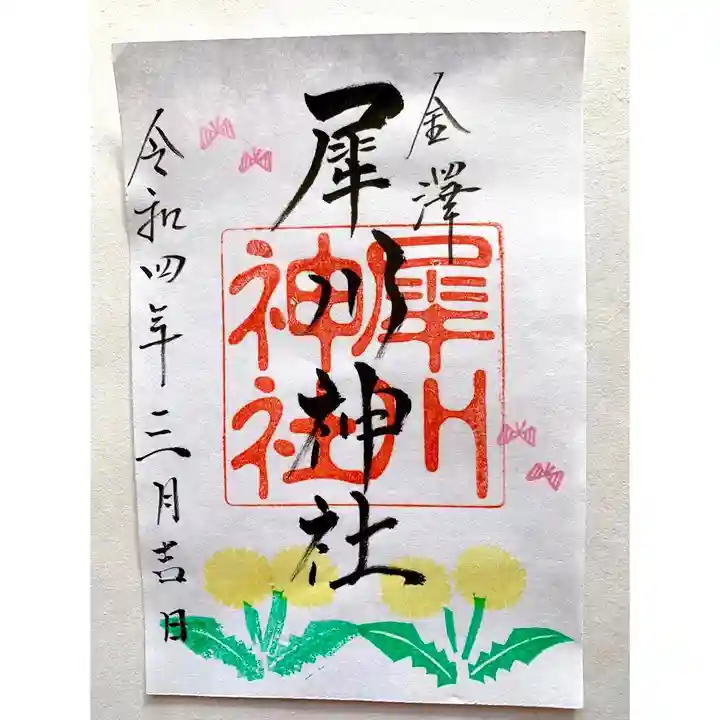 金澤
犀川神社
犀川
神社
令和四年三月吉日